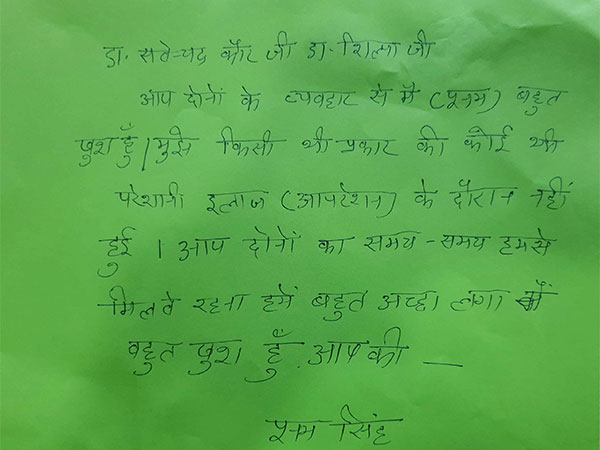 डा. सवेन्यद्र कौर जी डा. शिल्पा जी
आप दोनों के व्यवहार से मैं (पूनम) बहुत
खुश हुँ। मुझे किसी भी प्रकार की कोई भी
परेशानी इलाज (आपरेशन) के दौरान नहीं
हुई । आप दोनों का समय-समय हमसे
मिलते रहना हमें बहुत अच्छा लगा मैं
बहुत खुश हुँ. आपकी —
पूनम सिंह